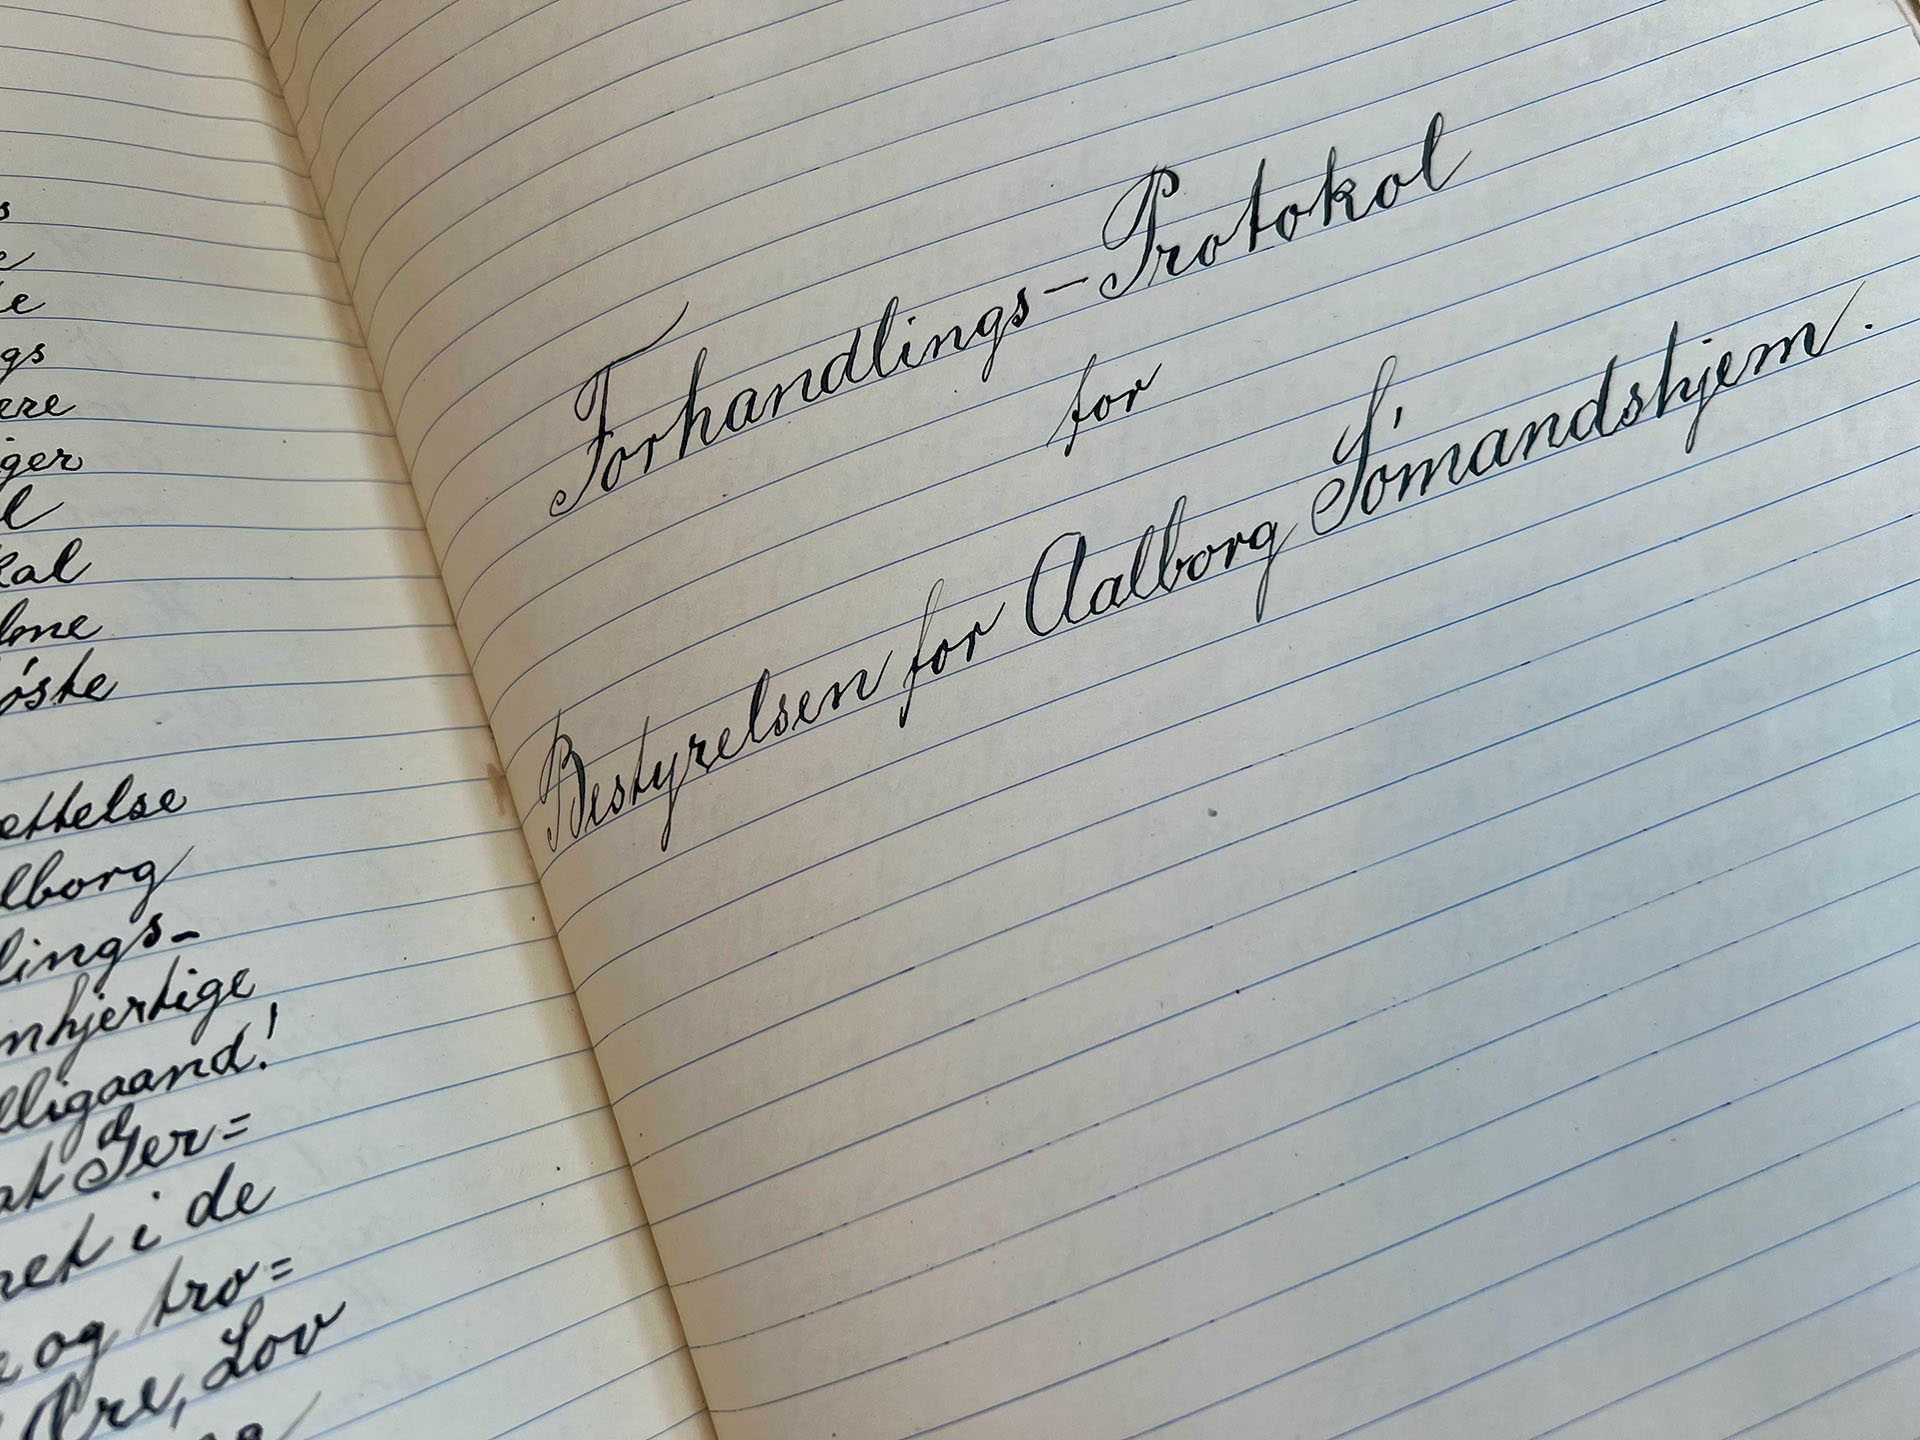 s
e
te
gs
ere
iger
l
kal
lme
óste
ettelse
lborg
lings-
mhjertige
lligaand!
at Ger=
net i de
e og tro=
Ære, Lov
Forhandlings-Protokol
for
Bestyrelsen for Aalborg Sómandshjem.